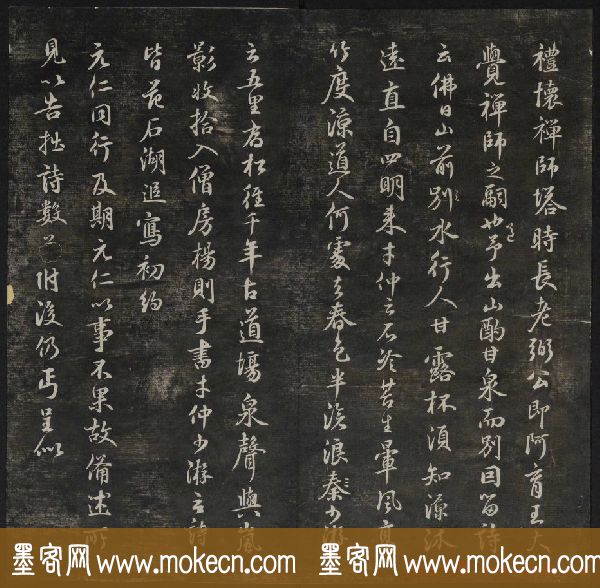 禮懷禪師塔時長老弼公即阿育王大
覺禪師之嗣也予出山酌甘泉而別因留詩
云佛日山前別水行人甘露杯須知源
遠直自四明來才仲云石冷苔生暈風高
竹度涼道人何處去春色半滄浪秦少游
云五里喬松徑千年古道場泉聲與嵐
影收拾入僧房楊則手書才仲少游之詩
皆苑石湖追寫初約
元仁同行及期元仁以事不果故備述所
見以告拙詩數
附後仍丐呈似
墨客网 www.mokecn.com 墨客网 www.mokecn.com